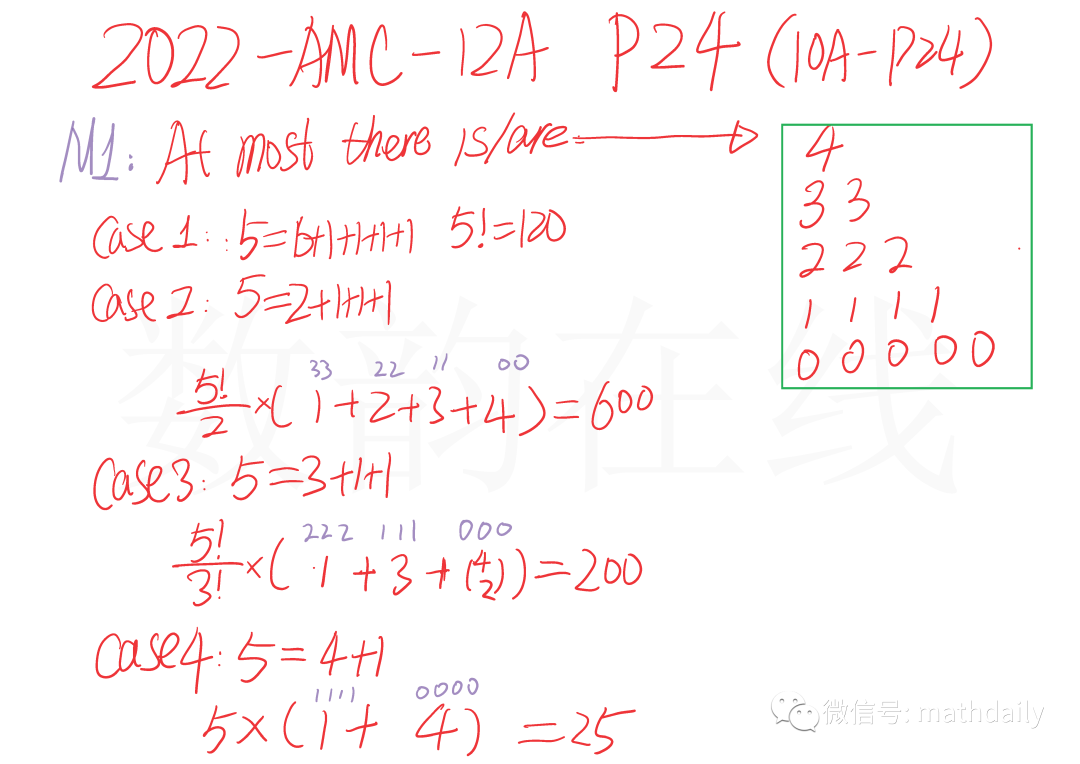 2022-AMC-12A P24 (10A-P24)
M1: At most there is/are:
4
3 3
2 2 2
1 1 1 1
0 0 0 0 0
Case 1: 5=1+1+1+1+1 5!=120
Case 2: 5=2+1+1+1
33 22 11 00
5!/2 ×(1+2+3+4)=600
Case3: 5=3+1+1
222 111 000
5!/3! ×(1+3+(4 2))=200
Case4: 5=4+1
1111 0000
5×(1+4)=25
数韵在线
微信号: mathdaily